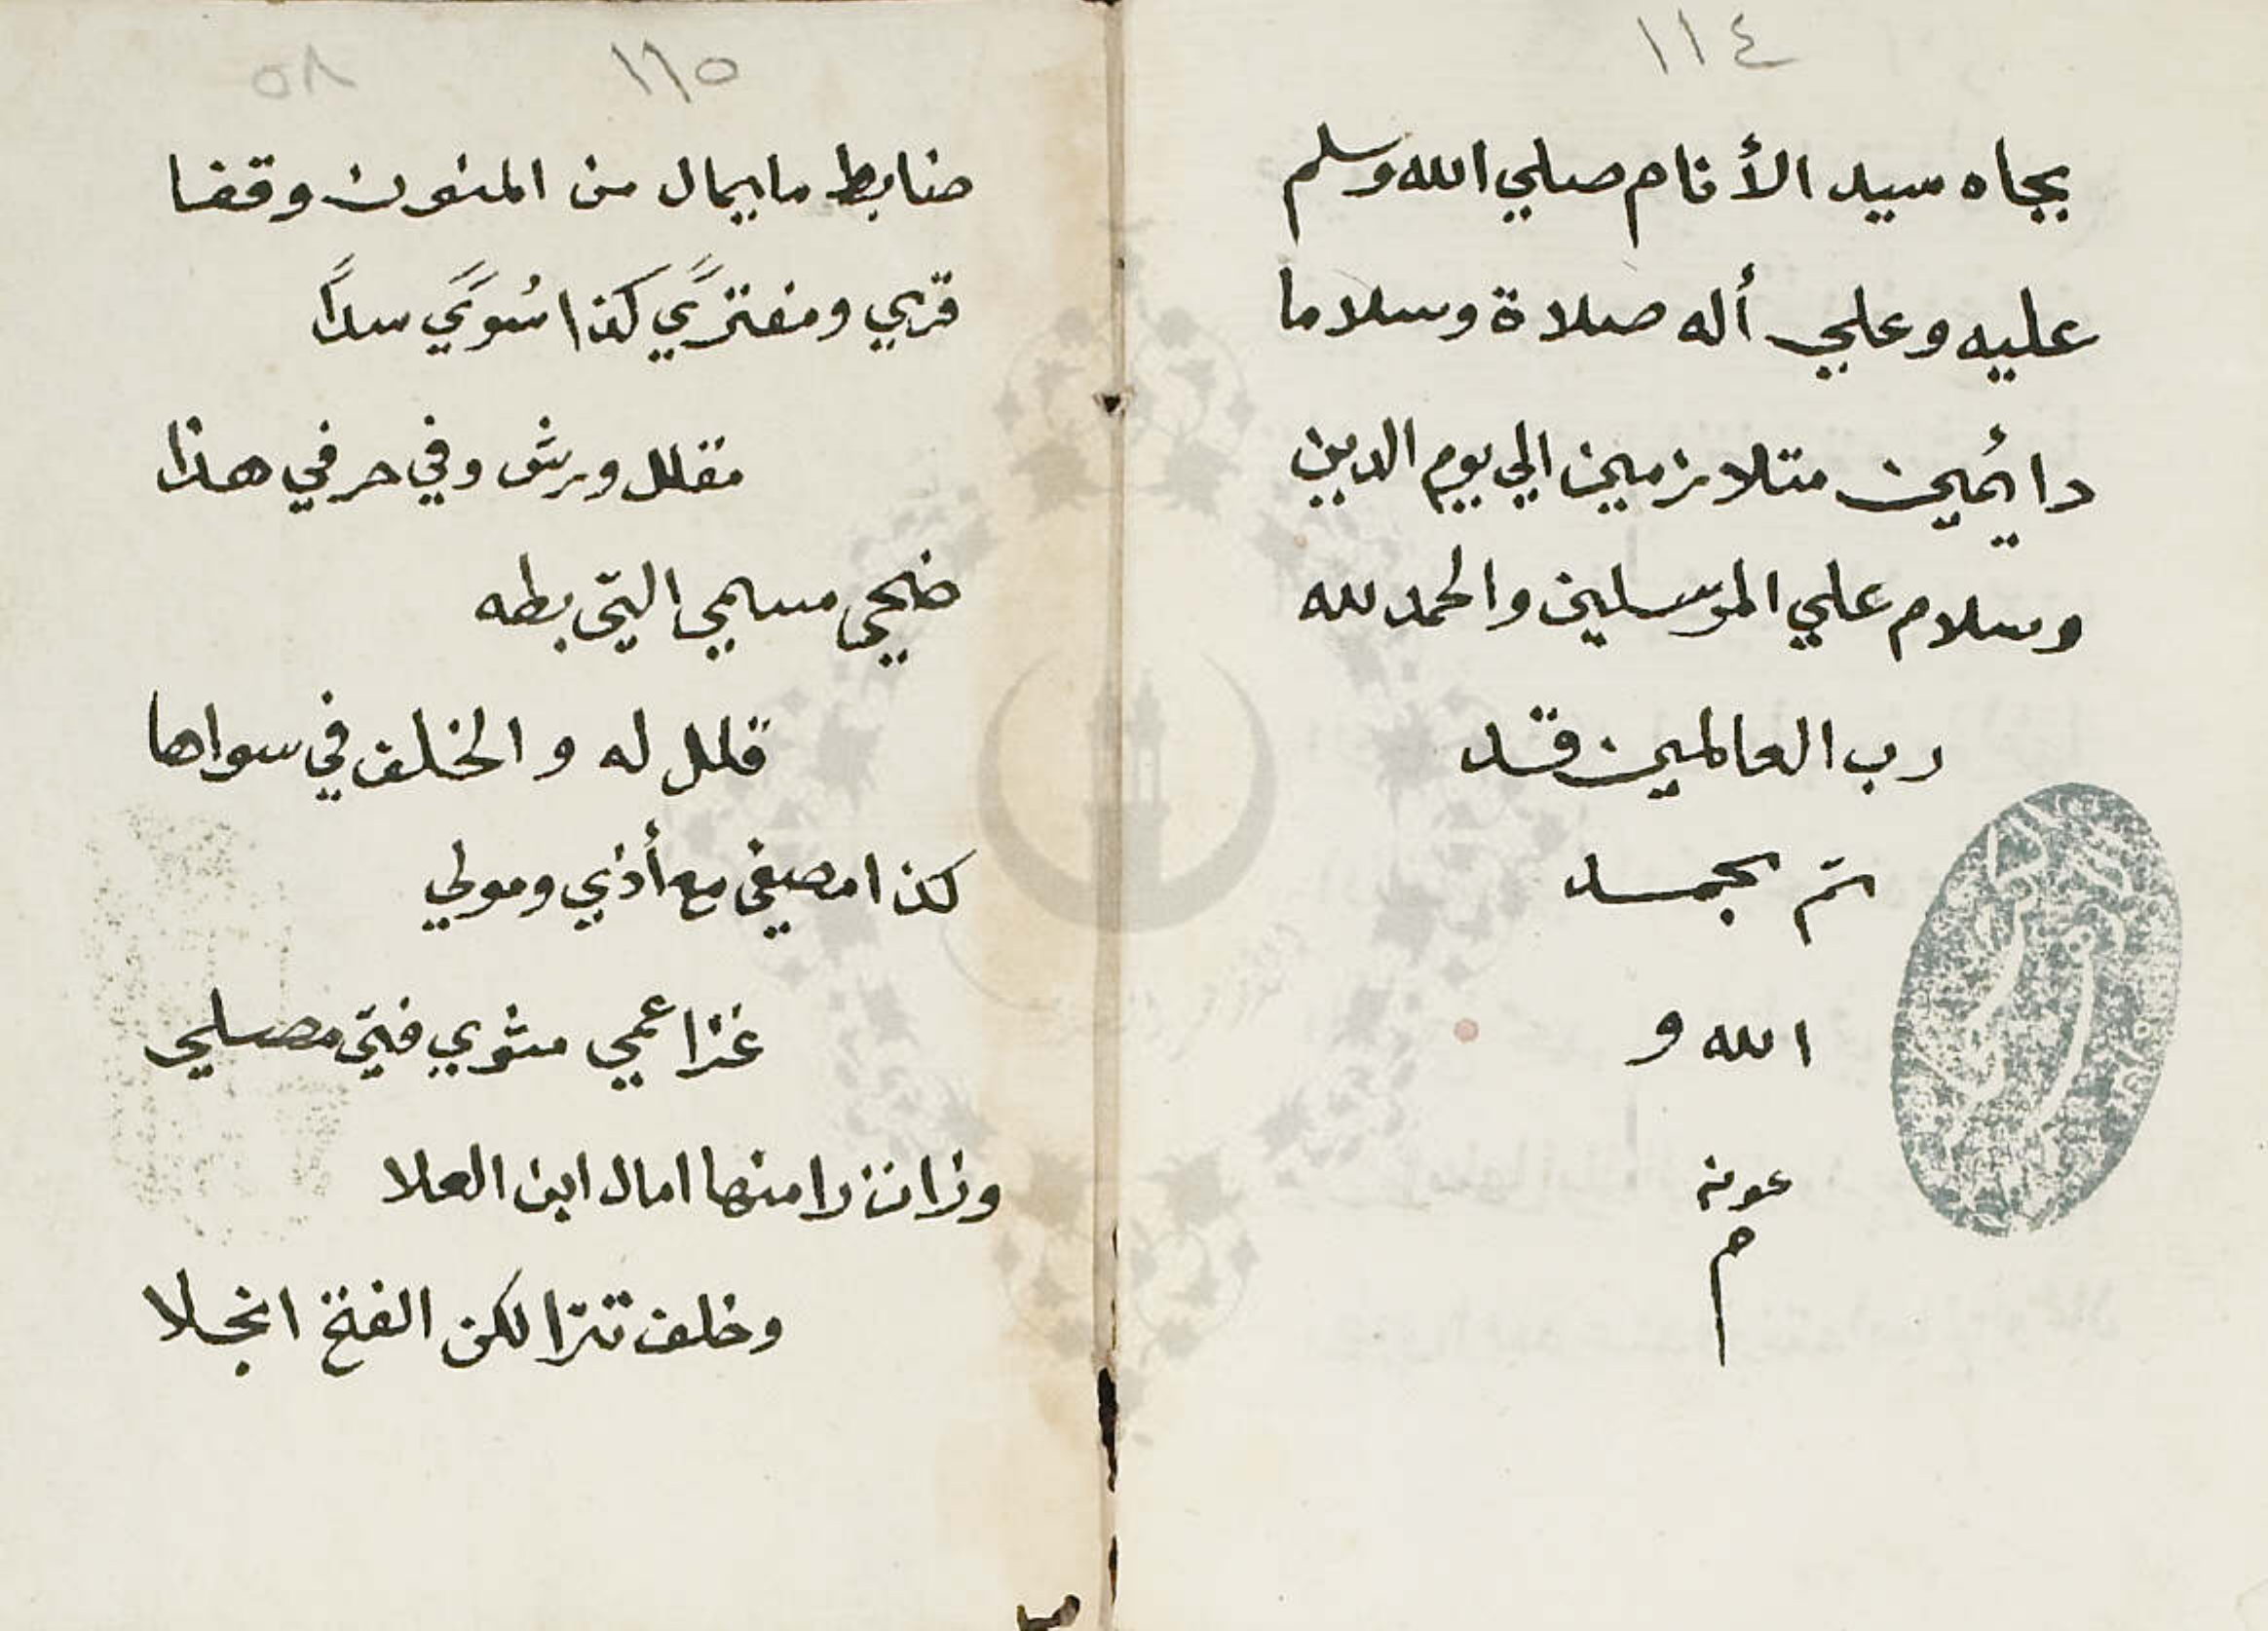 ١١٤
بجاه سيد الأنام صلي الله وسلم
عليه وعلي أله صلاة وسلاما
دائمين متلازمين الي يوم الدين
وسلام علي المرسلين والحمد لله
رب العالمين قد
تم بحمد
الله و
عونه
م
١١٥
٥٨
ضابط ما يمال من المنون وقفا
قري ومفترًي كذا سُوًي سدًا
مقلل ورش وفي حرفي هذا
ضحي مسمي التي بطه
قلل له و الخلف في سواها
كذا مصفي مع أذي ومولي
غزا عمي مثوي فتي مصلي
وذات را منها امال ابن العلا
وخلف تترا لكن الفتح انجلا